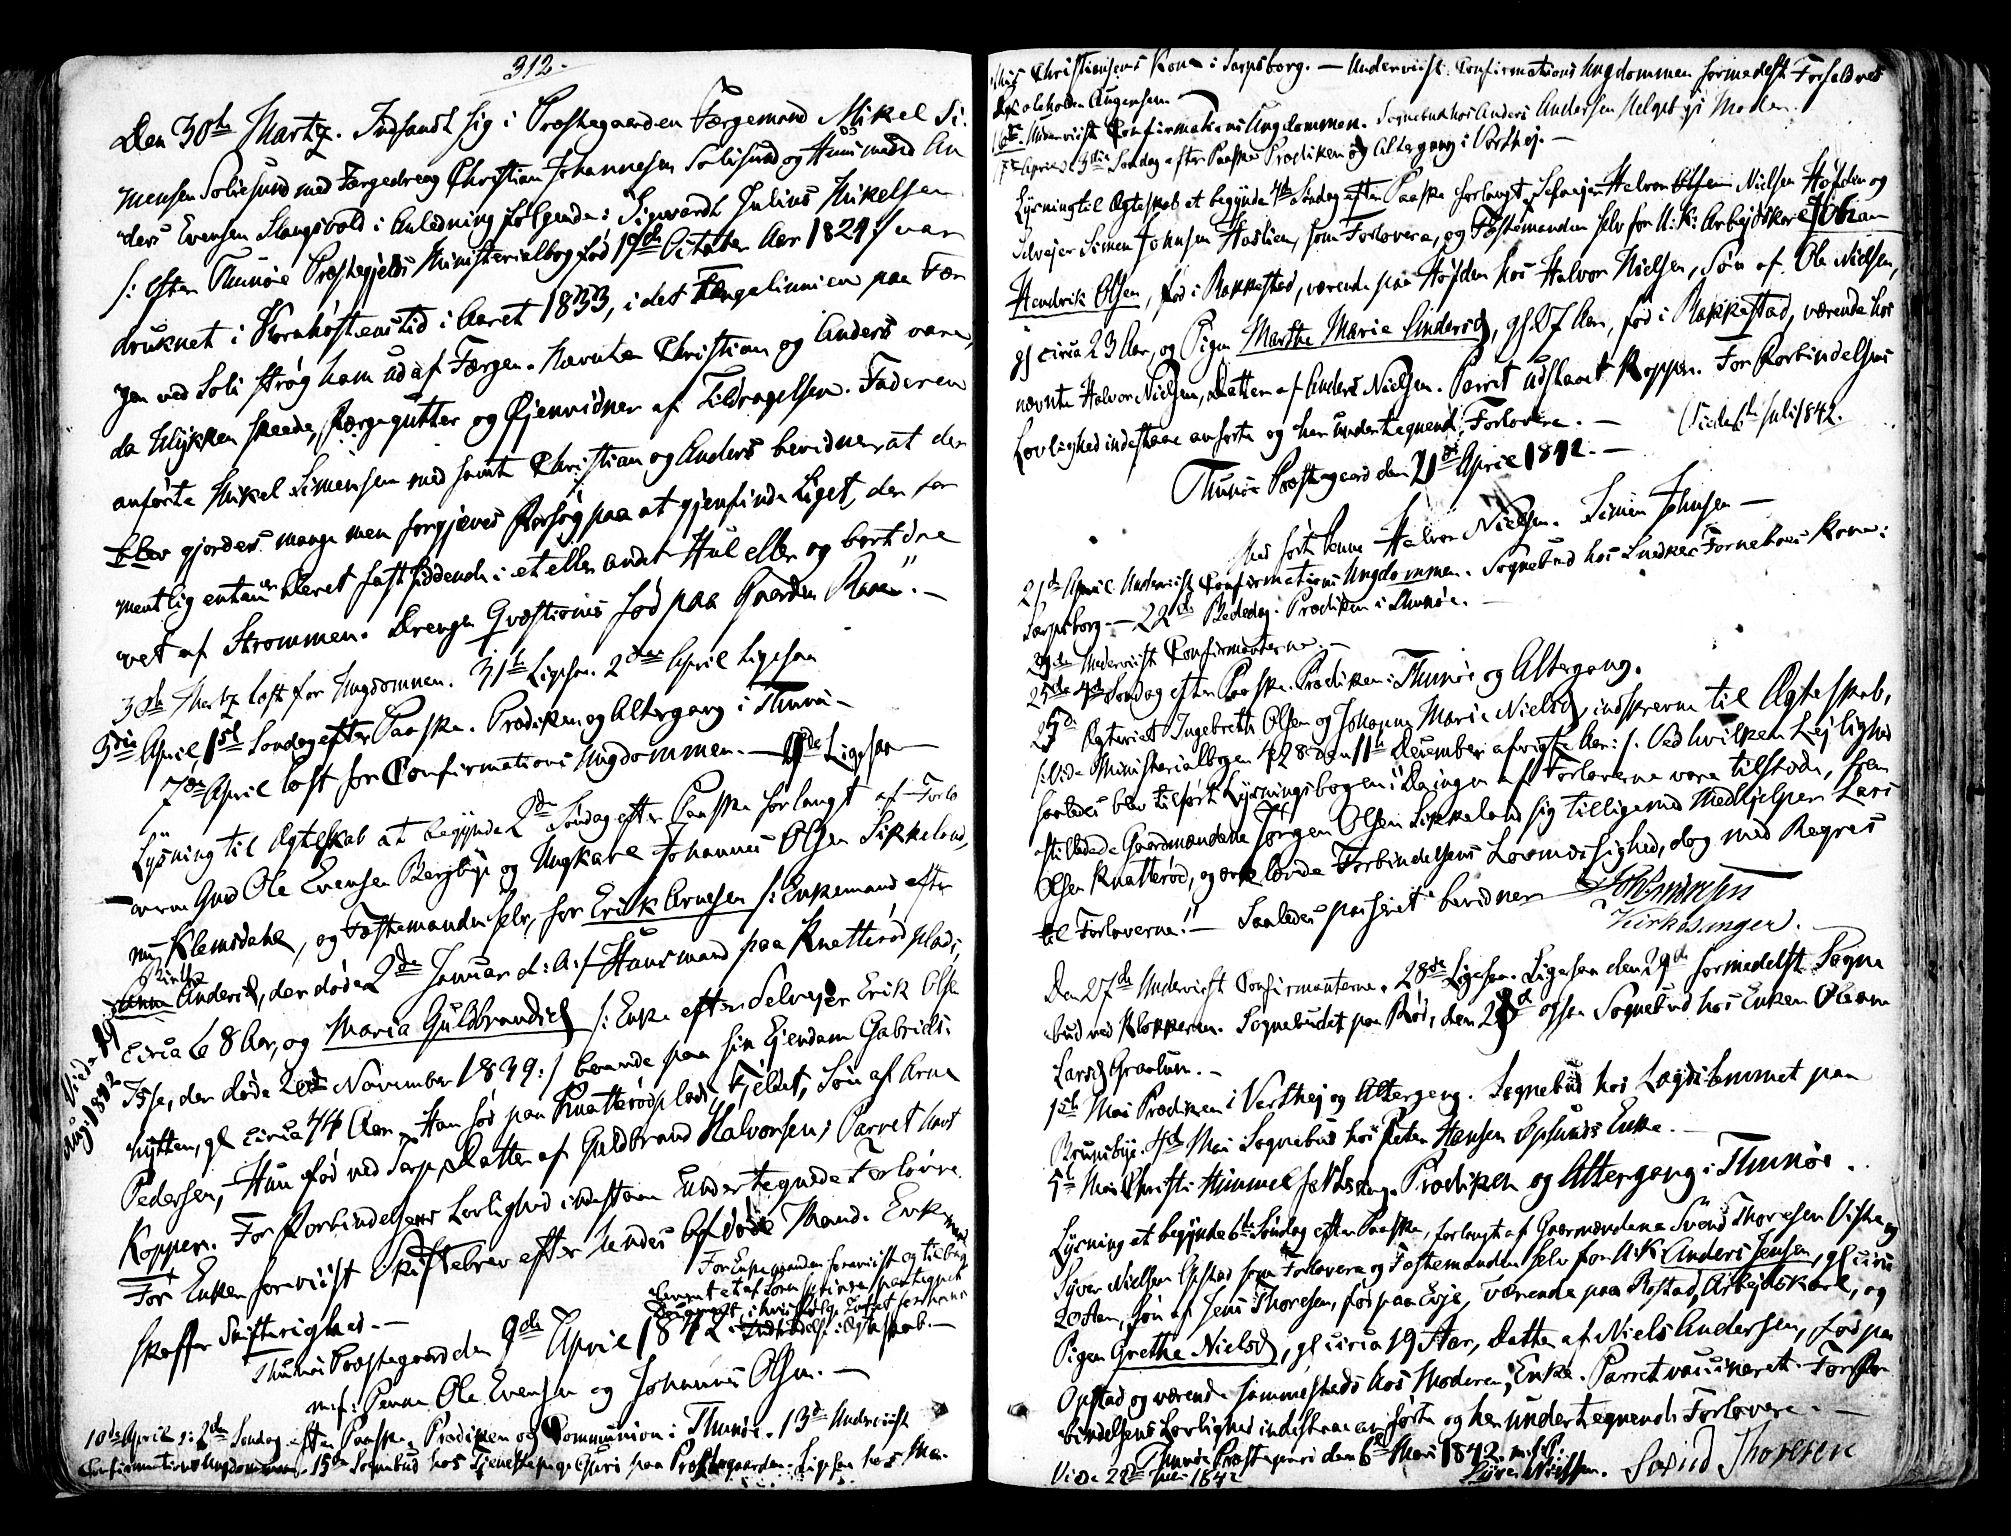 312.
Den 30th Martz. Indfandt sig i Præstegaarden Færgemand Mikel Si-
mensen Soliesund med Færgedreng Christian Johannesen Solisund og Huusmand An
ders Evensen Slangsvold i Anledning følgende: Sigvardt Julius Mikelsen
/: efter Thunøe Præstegjelds Ministerialbog fød 19de Octobter Aar 1824 :/ var
druknet i Kornhøstens tid i Aaret 1833, i det Færgelinnien paa Fær
gen ved Soli strøg ham ud af Færgen. Nævnte Christian og Anders vare,
da Ulykken skeede, Færgegutter og Øjenvidner af Tildragelsen. Faderen
anførte Mikel Simensen med samt Christian og Anders bevidner, at der
blev gjordes mange men forgjæves Forsøg paa at gjenfinde Liget, der for
mentlig enten er blevet fastsiddende i et eller andet Hul eller og bortdre
vet af Strømmen. Drengen Qvæstionis fød paa Gaarden Raae". —
30th Martz læst for Ungdommen. 31th Ligesaa. 2den April Ligesaa
3die April, 1st Søndag efter Paaske. Prædiken og Altergang i Thunøe —
7de April læst for Confirmations Ungdommen. — 9de Ligesaa —
Lysning til Ægteskab at begynde 2den Søndag efter Paaske forlangt af Forlo
verne Gmd Ole Evensen Bergbye og Ungkarl Johannes Olsen Sikkeland,
nu Klemsdahl, og Fæstemanden selv, for Erik Arnesen /: Enkemand efter
Anna Andersd, der døde 2de Januar d: A: / Huusmand paa Knatterødplads,
circa 68 Aar, og Maria Guldbrandsd /: Enke efter Selvejer Erik Olsen
Vide 19
Aug: 1842
Tosse, der døde 20de November 1839 :/ boende paa sin Ejendom Gabriels-
hytten, gl circa 44 Aar. Han fød paa Knatterødplads, Kjeldet, Søn af Arne
Pedersen, Hun fød ved Sarp, Datter af Guldbrand Halvorsen; Parret havt
Kopper. For Forbindelsens Lovlighed indestaae Undertegnede Forlovere
For Enken foreviist Skiftebrev efter hendes afdøde Mand. Enkemand
skaffer Skifterighed. —
For Enkemanden foreviist og tilbag
leveret
i Ægteskab. —
Thunøe Præstegaard den 9de April 1842
m. f: Penn Ole Evensen og Johannes Olsen. —
10de April :/ 2den Søndag efter Paaske. Prædiken og Communion i Thunøe. 13de Underviist
Confirmations Ungdommen. 15de Sognebud hos Tjenestepige Guri paa Præstegaarden. Ligesaa hos Ma-
this Christiansens Kone i Sarpsborg. — Underviist Confirmations Ungdommen formedelst Forfaldnes
Augensem
16de. Underviist Confirmations Ungdommen. Sognebud hos Anders Andersen Helgebye Moder.
17de April :/ 3die Søndag efter Paaske Prædiken og Altergang i Varthej. —
Lysning til Ægteskab at begynde 4de Søndag efter Paaske forlangt af Selvejer Halvor Nielsen Høfden og
Selvejer Simen Johnsen Haslien, som Forlovere, og Fæstemanden selv for U: K: Arbejdskarl Johan
Hendrik Olsen, fød i Rakkestad, værende paa Høfden hos Halvor Nielsen, Søn af Ole Nielsen,
gl circa 23 Aar, og Pigen Marthe Marie Andersd, gl. 27 Aar, fød i Rakkestad, værende hos
nævnte Halvor Nielsen, Datter af Anders Nielsen. Parret udstaaet Kopper. For Forbindelsens
Lovlighed indestaae anførte og her undertegnende Forlovere. — (Vide 6te Juli 1842.
Thunøe Præstegaard den 21de April 1842. —
Med ført Penne Halvor Nielsen. Simen Johnsen —
21de April Underviist Confirmations Ungdommen. Sognebud hos Snedker Fornebos Kone i
Sarpsborg. — 22de Bededag. Prædiken i Thunøe. —
23de Underviist Confirmanterne —
24de 4de Søndag efter Paaske. Prædiken i Thunøe og Altergang.
25de Ægteviet Ingebreth Olsen og Johanne Marie Nielsd, indskrevne til Ægteskab,
/: Vide Ministerialbogen № 28 den 11te December afvigte Aar: /. Ved hvilken Lejlighed
saaledes blev tilført Lysningsbogen: "Da ingen af Forloverne vare tilstæde, frem
stillede Gaardmændene Jørgen Olsen Sikkeland sig tilligemed Medhjelper Lars
Olsen Knatterød, og erklærede Forbindelsens Lovmæssighed, dog med Regres
til Forloverne." — Saaledes passeret bevidner
Kirkesanger.
Den 27de Underviist Confirmanterne. 28de Ligesaa. Ligesaa den 29de formedelst Sogne
bud ved Klokkeren. Sognebudet paa Rød, den 28de ogsaa Sognebud hos Enken Oleane
Larsd Graalum. —
1ste Mai Prædiken i Varthej og Altergang. Sognebud hos Lægdslemmet paa
Bruunsbye. 4de Mai Sognebud hos Peter Hansen Opsunds Enke. —
5te Mai Christi Himmelfartsdag. Prædiken og Altergang i Thunøe.
Lysning at begynde 6te Søndag efter Paaske, forlangt af Gaardmændene Svend Thoresen Visten og
Syver Nielsen Opstad som Forlovere og Fæstemanden selv for U: K: Anders Jensen, gl circa
20 Aar, Søn af Jens Thoresen, fød paa Evje, værende paa Rostad, Arbejdskarl, og
Pigen Grethe Nielsd, gl circa 19 Aar, Datter af Niels Andersen, fød paa
Opstad og værende sammesteds hos Moderen, Enke. Parret vaccineret. For For
bindelsens Lovlighed indestaae anførte og her undertegnende Forlovere. —
Thunøe Præstegaard den 6te Mai 1842. m. f. P:
Vide 28de Juli 1842 Syver Nielsen. Svend Thoresen